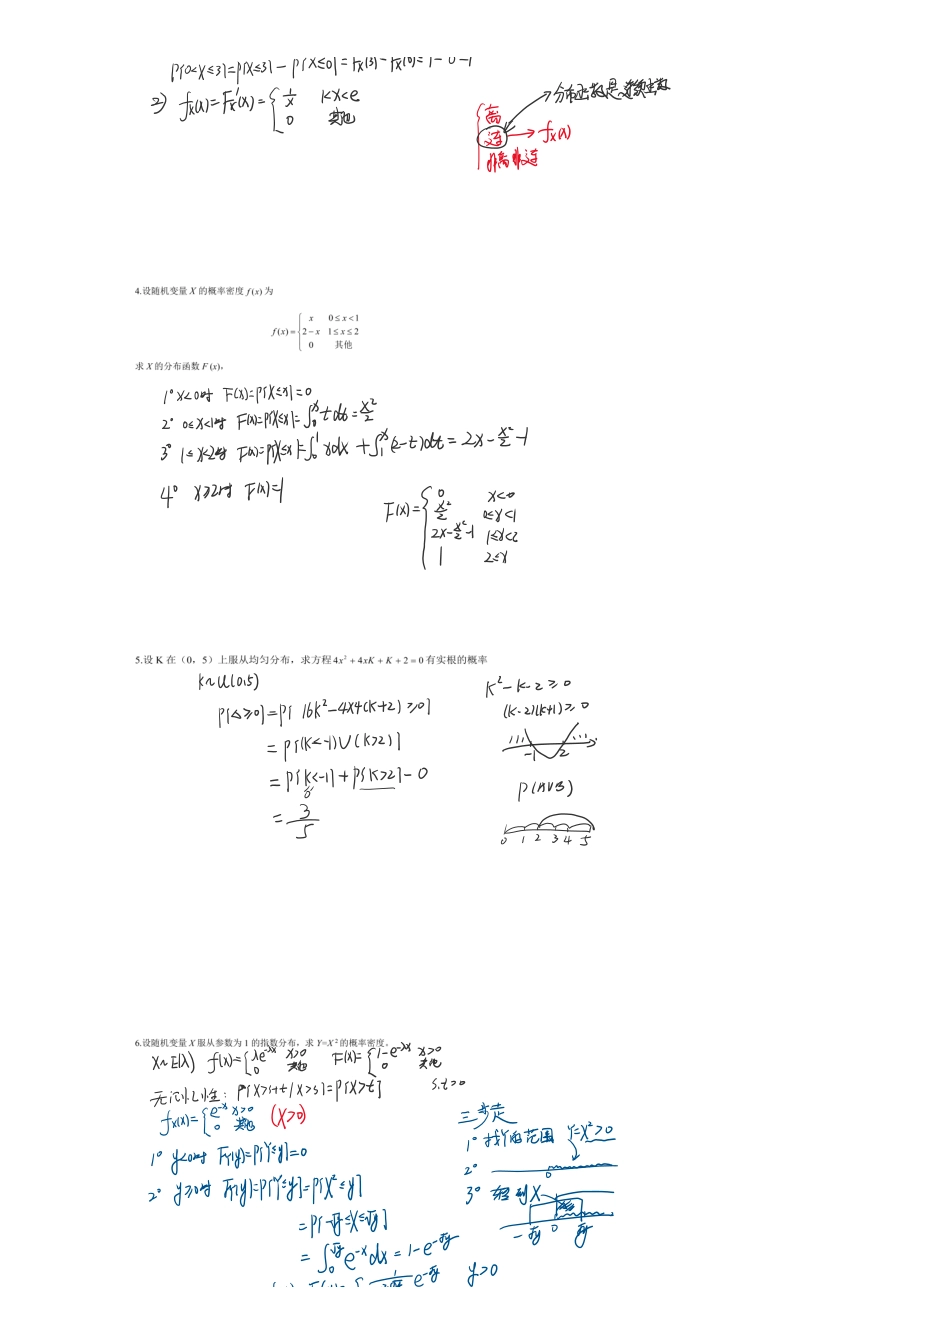 P{0<X≤3}=P{X≤3}-P{X≤0}=Fx(3)-Fx(0)=1-0=1
2) fx(x)=Fx'(x)={ 1/x 1<x<e
0 其他
分布函数是连续函数
{ 离
连 → fx(x)
非离非连
4.设随机变量 X 的概率密度 f (x) 为
f(x) = { x 0≤x<1
2-x 1≤x≤2
0 其他
求 X 的分布函数 F (x)。
1° x<0时 F(x)=P{X≤x}=0
2° 0≤x<1时 F(x)=P{X≤x}=∫₀ˣ t dt = x²/2
3° 1≤x<2时 F(x)=P{X≤x}=∫₀¹ x dx + ∫₁ˣ (2-t) dt = 2x - x²/2 - 1
4° x≥2时 F(x)=1
F(x)={ 0 x<0
x²/2 0≤x<1
2x-x²/2-1 1≤x<2
1 2≤x
5.设 K 在（0，5）上服从均匀分布，求方程 4x² + 4xK + K + 2 = 0 有实根的概率
K~U(0,5)
P{Δ≥0}=P{16K²-4×4(K+2)≥0}
=P{(K<-1)∪(K>2)}
=P{K<-1}+P{K>2}-0
0
=3/5
K²-K-2≥0
(K-2)(K+1)≥0
-1 2
P(A∪B)
0 1 2 3 4 5
6.设随机变量 X 服从参数为 1 的指数分布，求 Y=X² 的概率密度。
X~E(λ) f(x)={ λe^-λx x>0 F(x)={ 1-e^-λx x>0
0 其他 0 其他
无记忆性: P{X>s+t/X>s}=P{X>t} s.t>0
fx(x)={ e^-x x>0 (X>0)
0 其他
1° y<0时 FY(y)=P{Y≤y}=0
2° y≥0时 FY(y)=P{Y≤y}=P{X²≤y}
=P{-√y≤X≤√y}
=∫₀^√y e^-x dx = 1-e^-√y
1/2√y e^-√y y>0
三步走
1° 找Y的范围 Y=X²>0
2° 0
3° 到X
-√y 0 √y